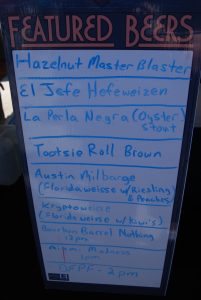 FEATURED BEERS
Hazelnut Master Blaster
El Jefe Hefeweizen
La Perla Negra (Oyster
Stout
Tootsie Roll Brown
Austin Milbarge
(Florida weisse w/Riesling
& Peaches)
Kryptoweisse
(Florida weisse w/kiwi's)
Bourbon Barrel Nothing
12pm
Madness
1pm
DFPF - 2pm